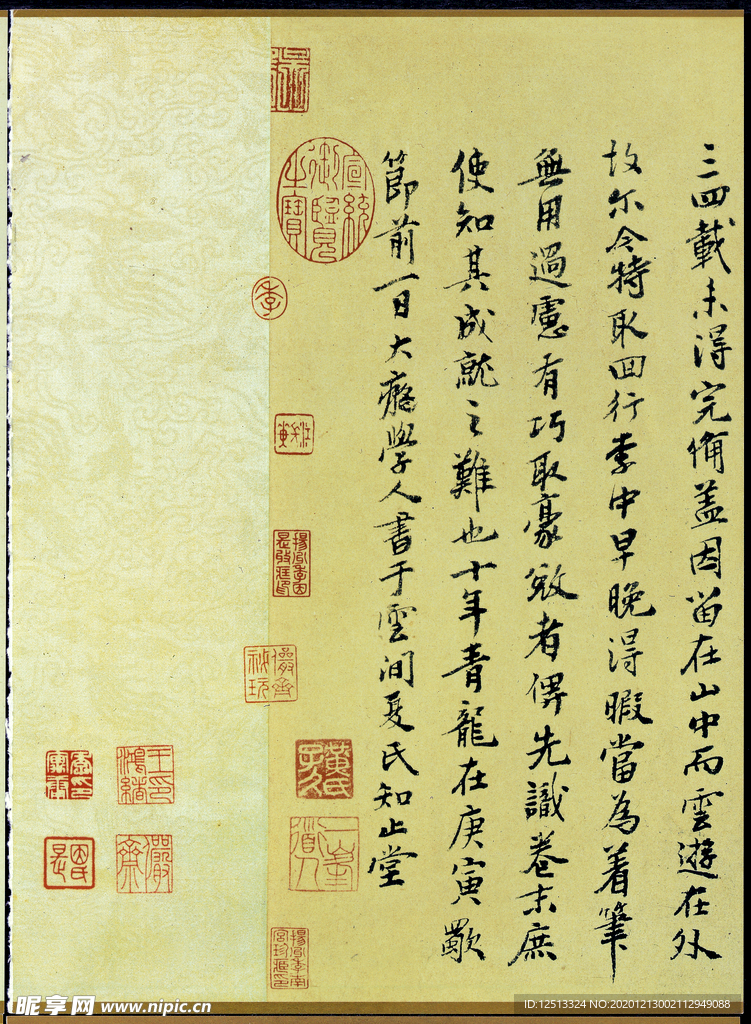 三四載未得完備盖因留在山中而雲遊在外
故尔今特取回行李中早晚得暇當為着筆
無用過慮有巧取豪敓者俾先識卷末庶
使知其成就之難也十年青龍在庚寅歜
節前一日大癡學人書于雲間夏氏知止堂
宣統御覽之寶
季
黃氏子久
一峯道人
王鴻緒印
儼齋
儼齋祕玩
昵享网 www.nipic.cn
ID:12513324 NO:20201213002112949088